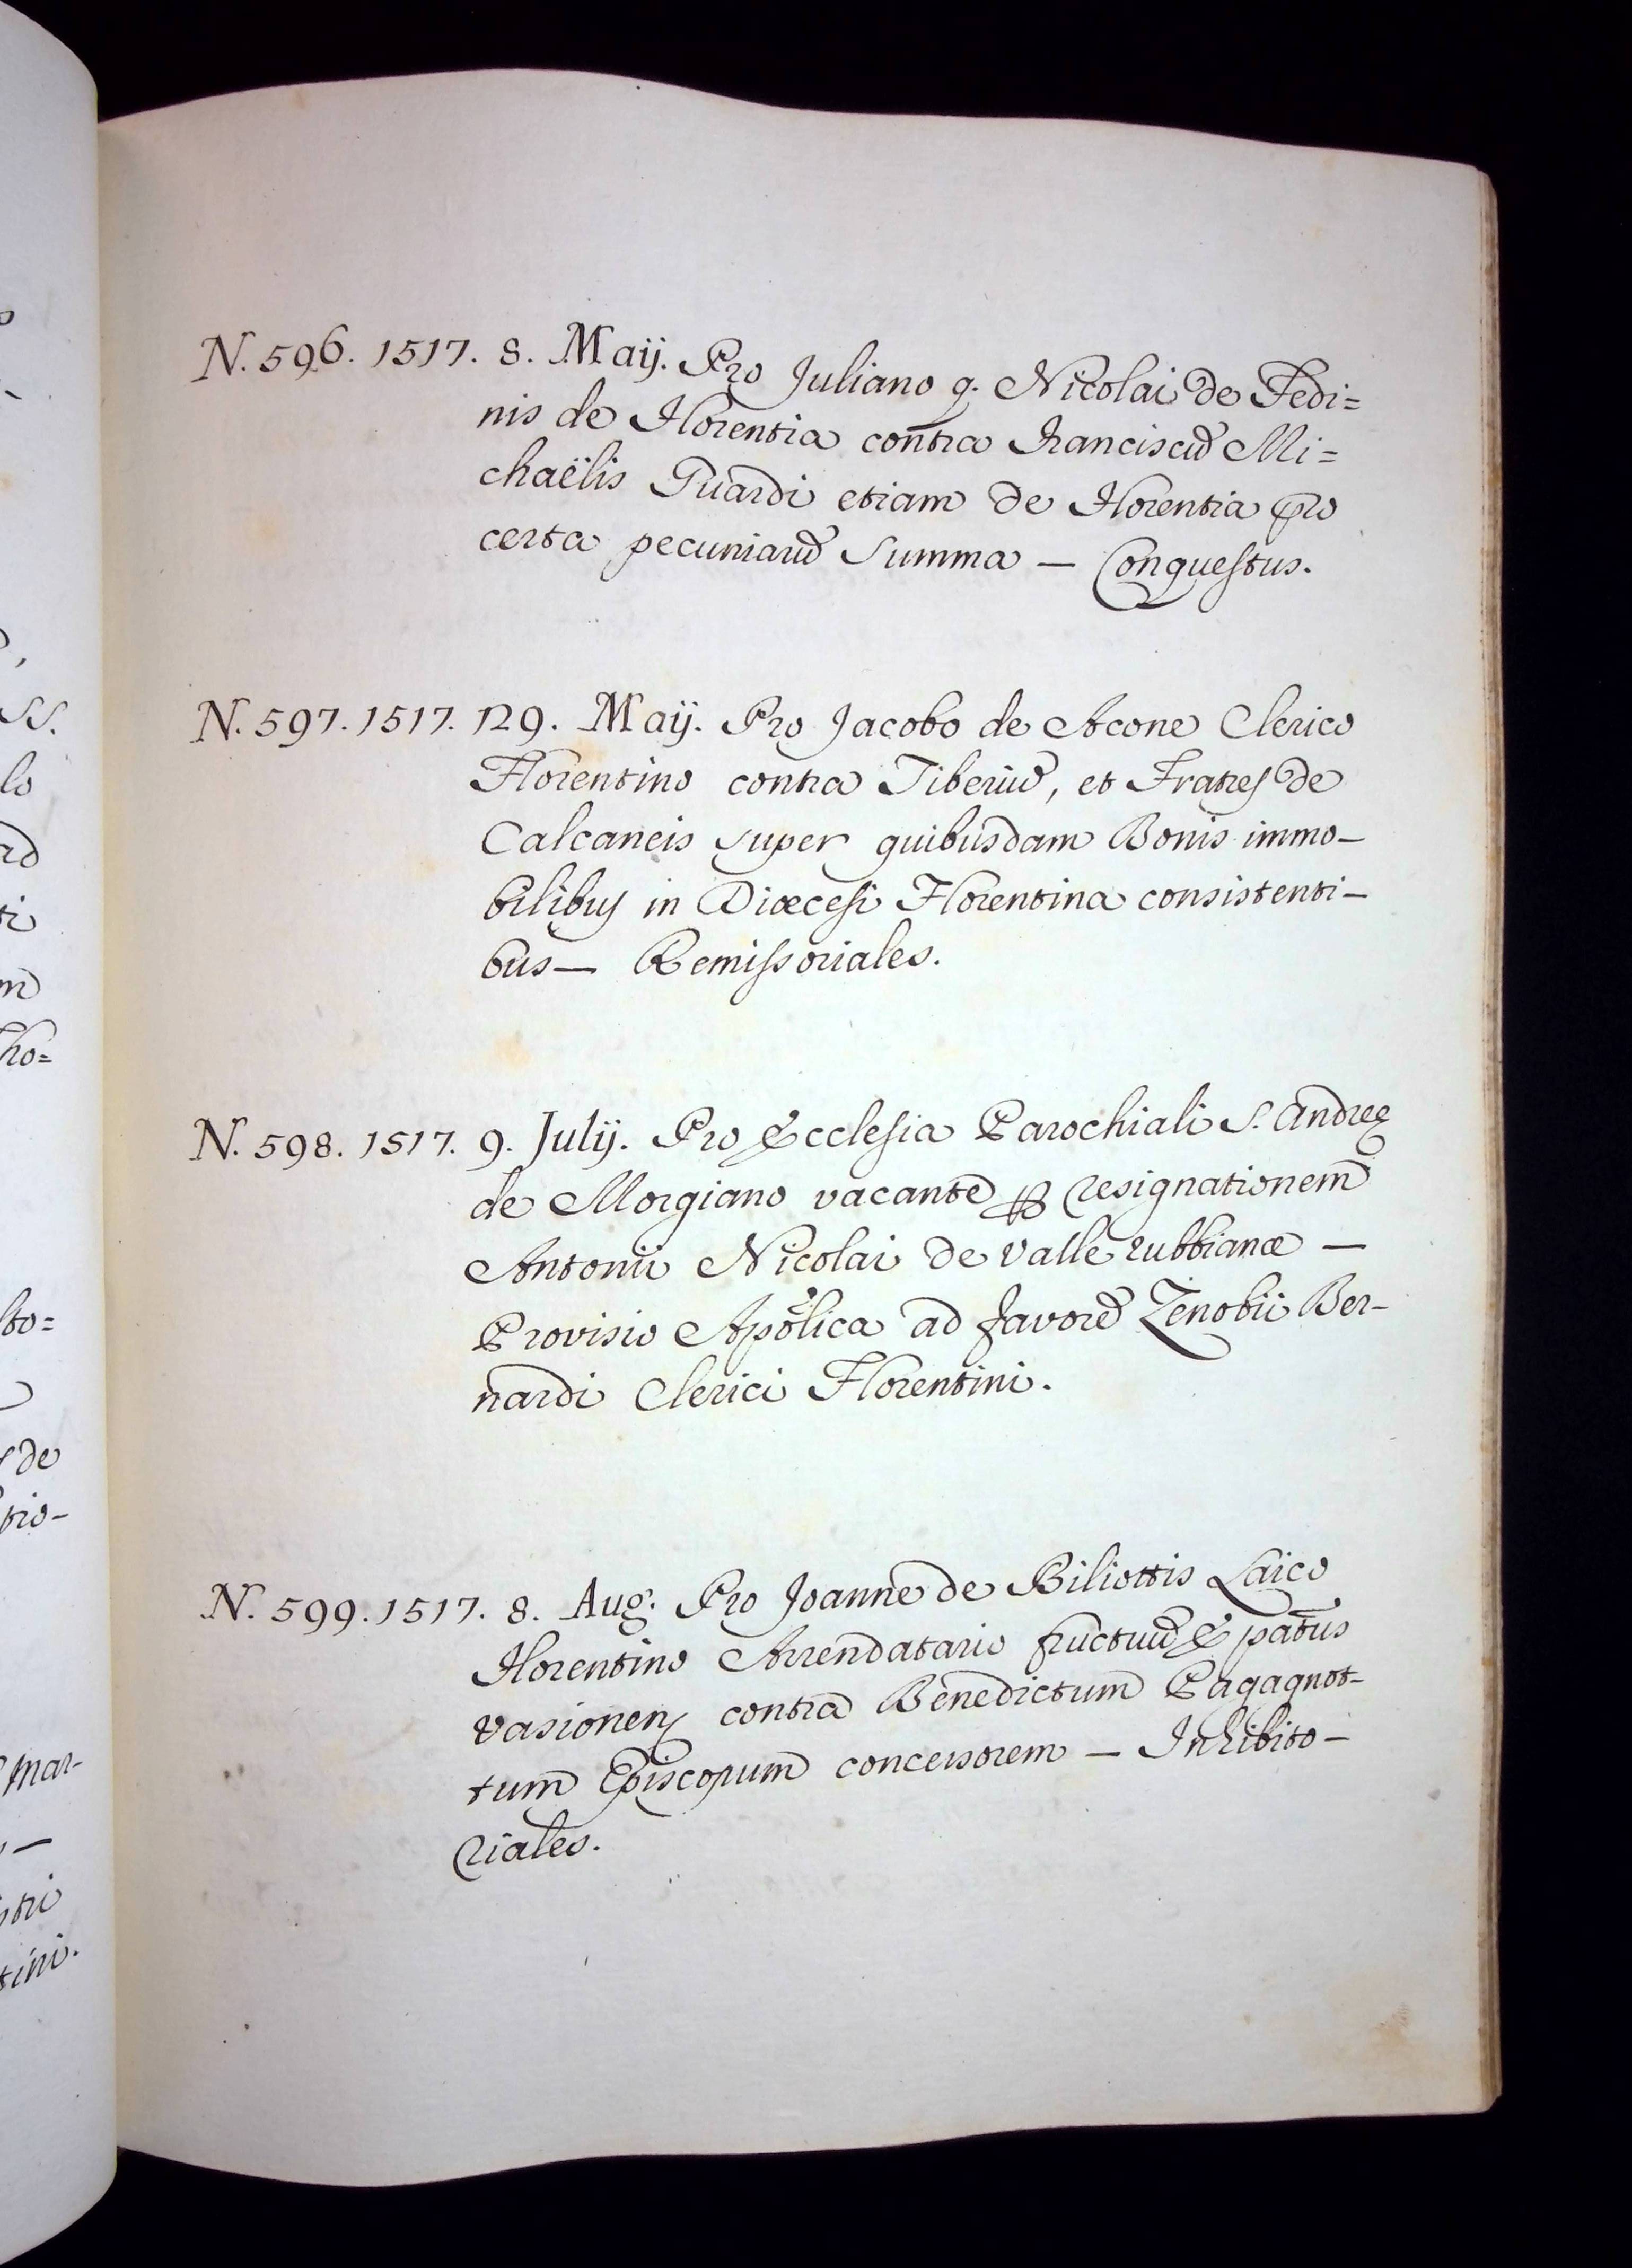 N. 596. 1517. 8. Maij. Pro Juliano q. Nicolai de Fedi=
nis de Florentia contra Franciscũ Mi=
chaëlis Guardi etiam de Florentia pro
certa pecuniarũ Summa — Conquestus.
N. 597. 1517. 129. Maij. Pro Jacobo de Acone Clerico
Florentino contra Tiberiũ, et Fratres de
Calcaneis super quibusdam Bonis immo-
bilibus in Diœcesi Florentina consistenti-
bus — Remissoriales.
N. 598. 1517. 9. Julij. Pro Ecclesia Parochiali S. Andreę
de Morgiano vacante ꝑ resignationem
Antonii Nicolai de Valle rubbianæ —
Provisio Aplica ad favorẽ Zenobii Ber-
nardi Clerici Florentini.
N. 599. 1517. 8. Aug. Pro Joanne de Biliottis Laico
Florentino Arrendatario fructuũ E patus
Vasionen contra Benedictum Pagagnot-
tum Episcopum concessorem — Inhibito-
riales.
ss.
lo
ho=
de
tio-
mar-
tini.